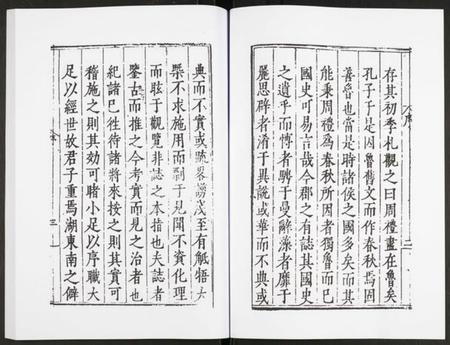 存其初季札觀之曰周禮盡在魯矣
孔子于是因魯舊文而作春秋焉固
善魯也當是時諸侯之國多矣而其
能秉周禮為春秋所因者獨魯而已
國史可易言哉今郡之有誌其國史
之遺乎而愽者騁于曼辭藻者靡于
麗思辟者滑于異說或華而不典或
典而不實或 至有觝牾大
槩不求施用而剽于見聞不資化理
而眩于觀覽非誌之本指也夫誌者
鑒古而推之今考實而見之治者也
紀諸已徃待諸將來按之則其實可
稽施之則其効可睹小足以序職大
足以經世故君子重焉湖東南之僻
序
二
三